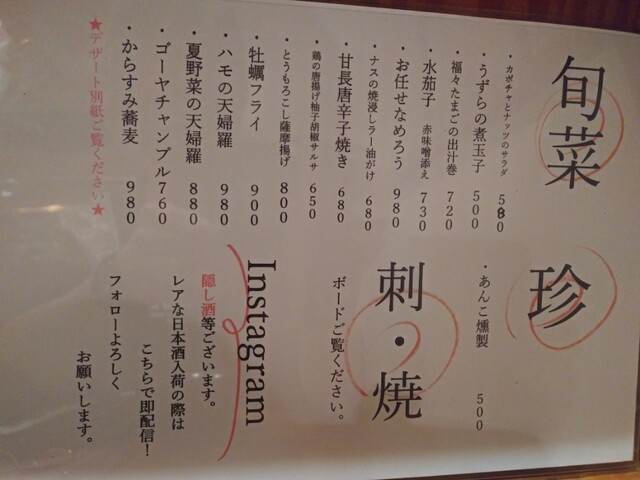 旬菜
・カボチャとナッツのサラダ 580
・うずらの煮玉子 500
・福々たまごの出汁巻 720
・水茄子 赤味噌添え 730
・お任せなめろう 980
・ナスの焼浸しラー油がけ 680
・甘長唐辛子焼き 680
・鶏の唐揚げ柚子胡椒サルサ 650
・とうもろこし薩摩揚げ 800
・牡蠣フライ 900
・ハモの天婦羅 980
・夏野菜の天婦羅 880
・ゴーヤチャンプル 760
・からすみ蕎麦 980
★デザート別紙ご覧ください★
珍
・あんこ燻製 500
刺・焼
ボードご覧ください。
Instagram
隠し酒等ございます。
レアな日本酒入荷の際は
こちらで即配信！
フォローよろしく
お願いします。